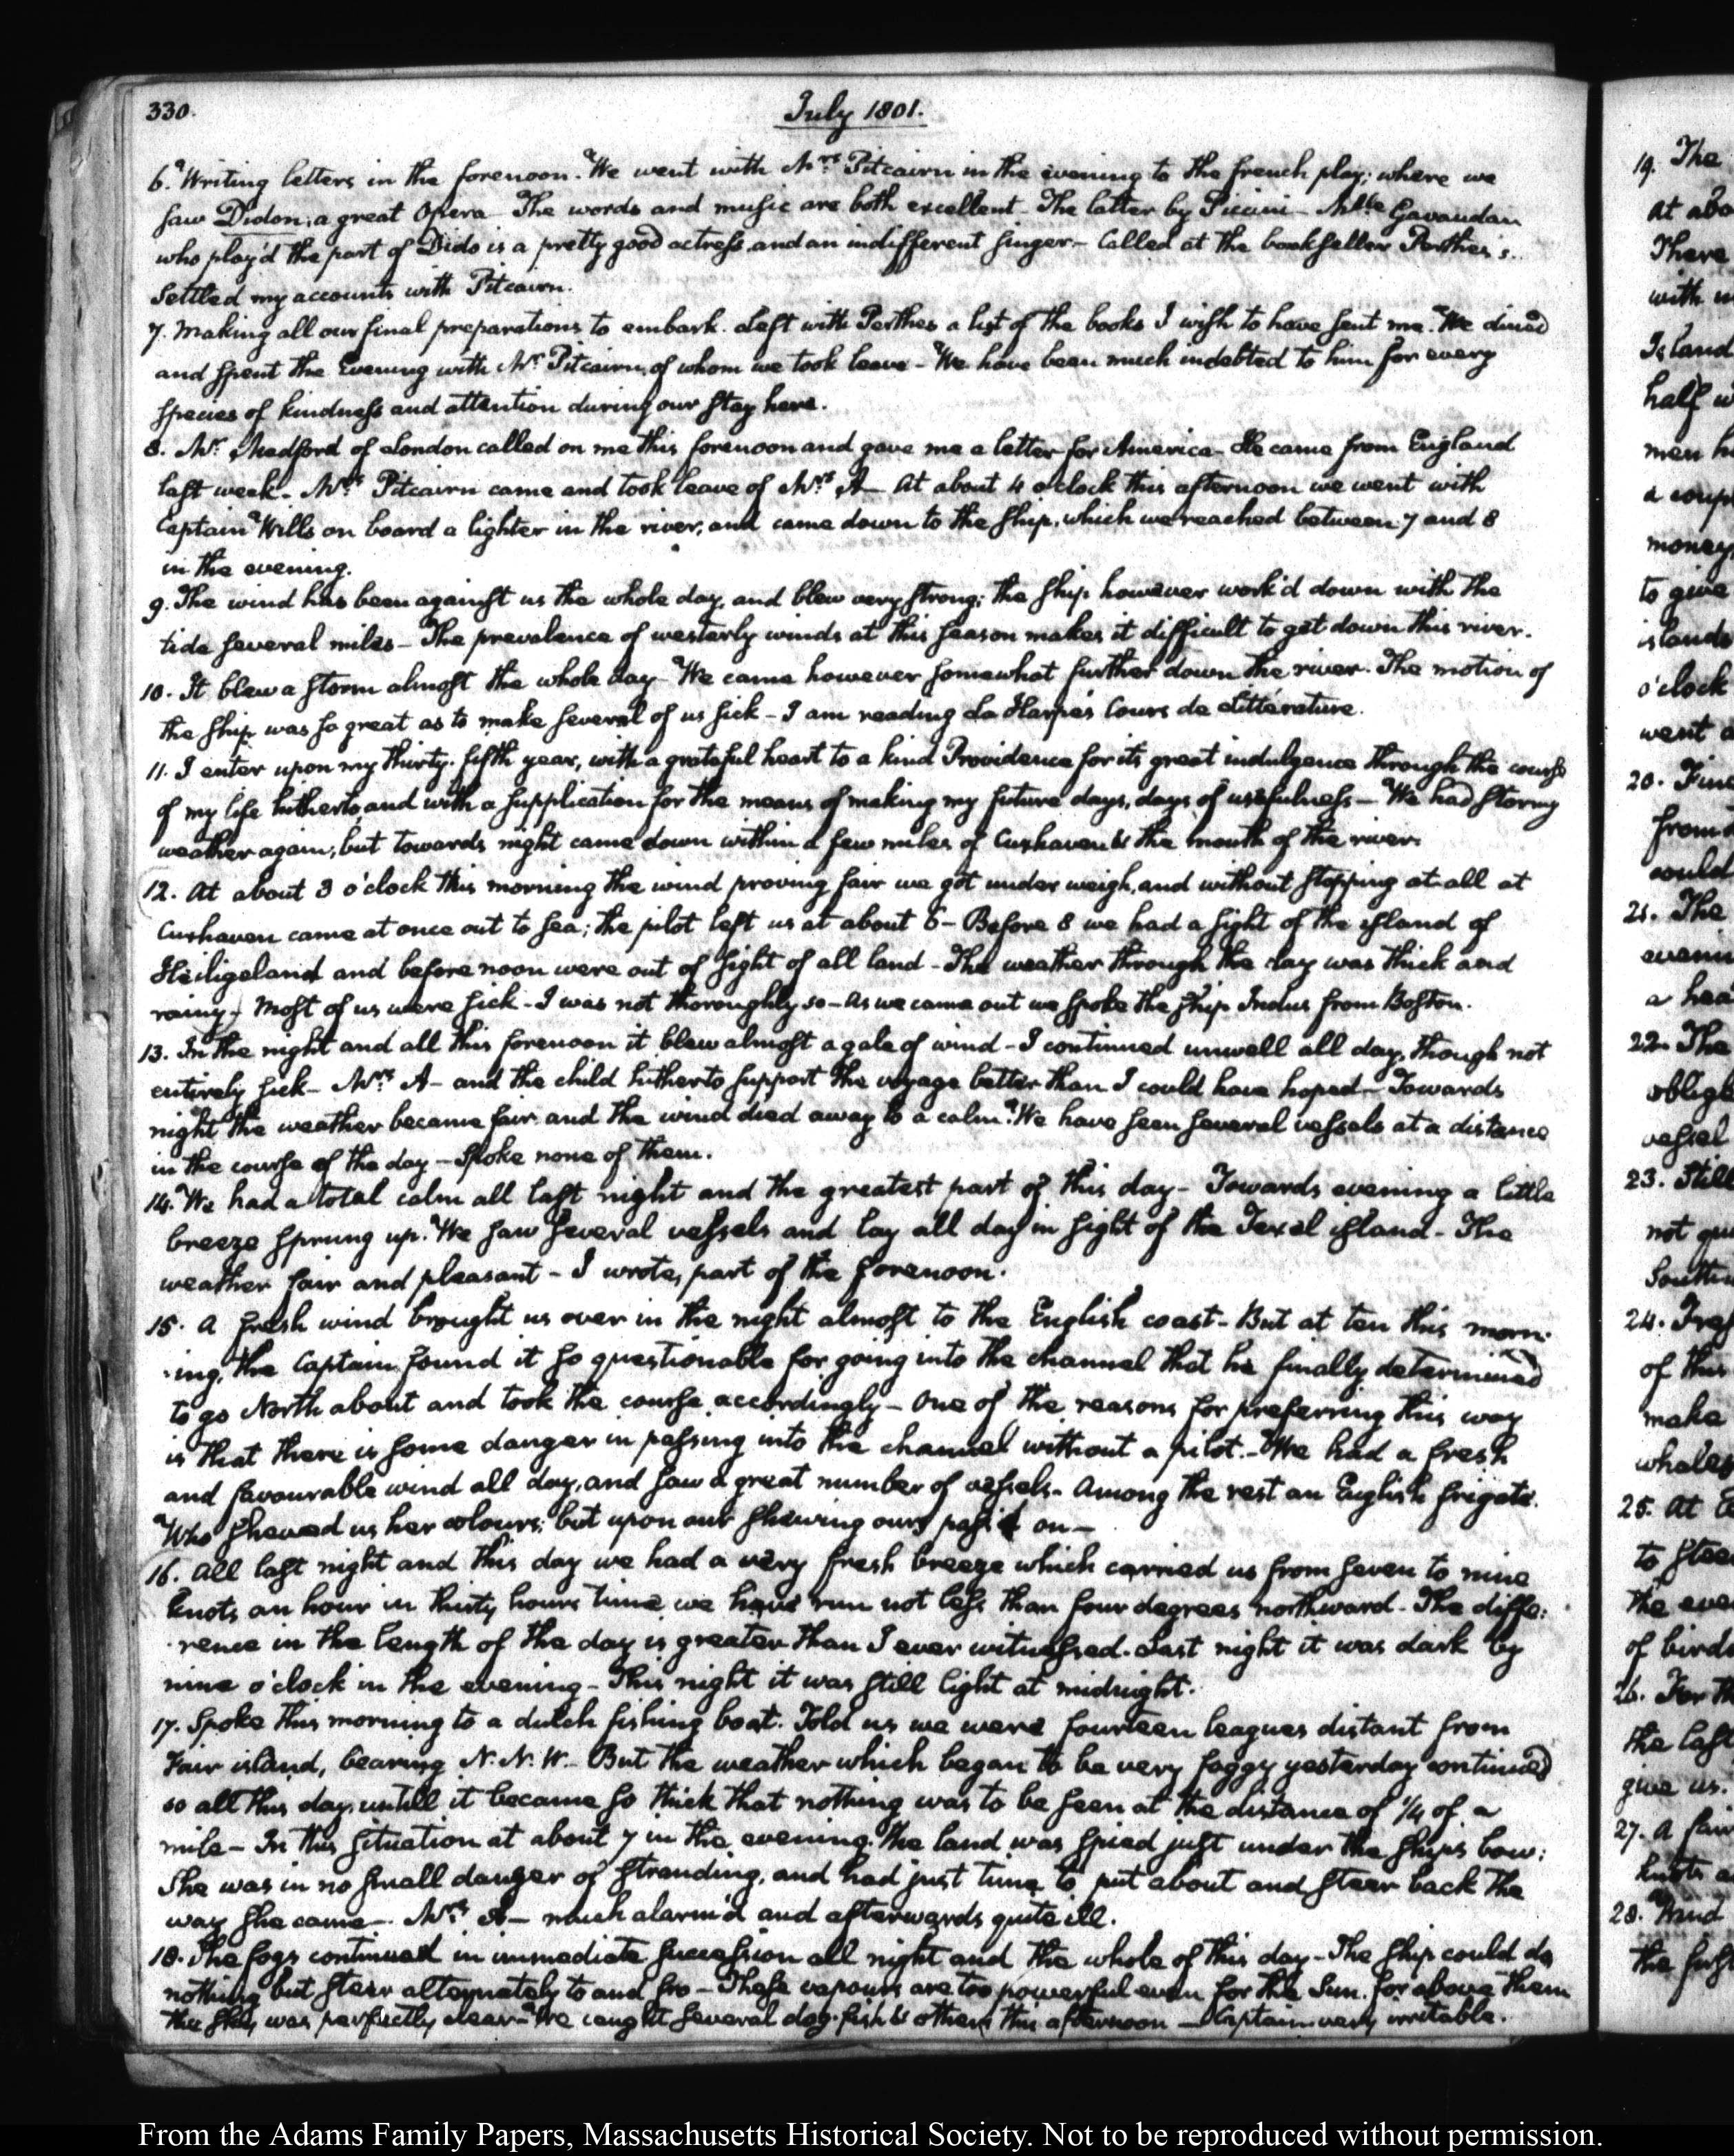 330.
July 1801.
6. Writing letters in the forenoon. We went with Mrs. Pitcairn in the evening to the french play; where we
saw Didon, a great Opera – The words and music are both excellent – The latter by Piccini – Mlle Gavaudan
who play'd the part of Dido is a pretty good actress, and an indifferent singer – Called at the bookseller Perthes's.
Settled my accounts with Pitcairn.
7. Making all our final preparations to embark. Left with Perthes a list of the books I wish to have sent me. We dined
and spent the Evening with Mr. Pitcairn, of whom we took leave – We have been much indebted to him for every
species of kindness and attention during our stay here.
8. Mr. Medford of London called on me this forenoon and gave me a letter for America – He came from England
last week. Mrs. Pitcairn came and took leave of Mrs. A – At about 4 o'clock this afternoon we went with
Captain Wills on board a lighter in the river; and came down to the ship, which we reached between 7 and 8
in the evening.
9. The wind has been against us the whole day, and blew very strong; the ship however work'd down with the
tide several miles – The prevalence of westerly winds at this season makes it difficult to get down this river.
10. It blew a storm almost the whole day – We came however somewhat further down the river. The motion of
the ship was so great as to make several of us sick – I am reading La Harpe's Cours de Littérature.
11. I enter upon my thirty-fifth year, with a grateful heart to a kind Providence for its great indulgence through the course
of my life hitherto, and with a supplication for the means of making my future days, days of usefulness – We had stormy
weather again; but towards night came down within a few miles of Cuxhaven & the mouth of the river.
12. At about 3 o'clock this morning the wind proving fair we got under weigh, and without stopping at all at
Cuxhaven came at once out to sea; the pilot left us at about 6 – Before 8 we had a sight of the island of
Heiligeland and before noon were out of sight of all land – The weather through the day was thick and
rainy – Most of us were sick – I was not thoroughly so – As we came out we spoke the ship Indus from Boston.
13. In the night and all this forenoon it blew almost a gale of wind – I continued unwell all day, though not
entirely sick – Mrs. A – and the child hitherto support the voyage better than I could have hoped – Towards
night the weather became fair and the wind died away to a calm. We have seen several vessels at a distance
in the course of the day – Spoke none of them.
14. We had a total calm all last night and the greatest part of this day – Towards evening a little
breeze sprung up. We saw several vessels and lay all day in sight of the Texel island – The
weather fair and pleasant – I wrote, part of the forenoon.
15. A fresh wind brought us over in the night almost to the English coast – But at ten this morn-
ing, the Captain found it so questionable for going into the channel that he finally determined
to go North about and took the course accordingly – One of the reasons for preferring this way
is that there is some danger in passing into the channel without a pilot. – We had a fresh
and favourable wind all day, and saw a great number of vessels – Among the rest an English frigate.
Who shewed us her colours; but upon our shewing ours pass'd on –
16. All last night and this day we had a very fresh breeze which carried us from seven to nine
knots an hour in thirty hours time we have run not less than four degrees northward – The diffe:
rence in the length of the day is greater than I ever witnessed. Last night it was dark by
nine o'clock in the evening – This night it was still light at midnight.
17. Spoke this morning to a dutch fishing boat. Told us we were fourteen leagues distant from
Fair island, bearing N. N. W. – But the weather which began to be very foggy yesterday continued
so all this day, untill it became so thick that nothing was to be seen at the distance of 1/4 of a
mile – In this situation at about 7 in the evening, the land was spied just under the ship's bow:
She was in no small danger of stranding, and had just time to put about and steer back the
way she came – Mrs. A – much alarm'd and afterwards quite ill.
18. The fogs continued in immediate succession all night and the whole of this day – The ship could do
nothing but steer alternately to and fro – These vapours are too powerful even for the Sun, for above them
the sky was perfectly clear – We caught several dog-fish & others this afternoon – Captain very irritable.
19. The
at abo
There
with
Island
half
men
a coup
money
to give
islands
o'clock
went
20. Fine
from
could
21. The
a hea
22. The
vessel
23. Still
not
24.
of this
make
25. At
to
the eve
of bird
26. For
the last
give us.
27. A
knots
28. Wind
the
From the Adams Family Papers, Massachusetts Historical Society. Not to be reproduced without permission.